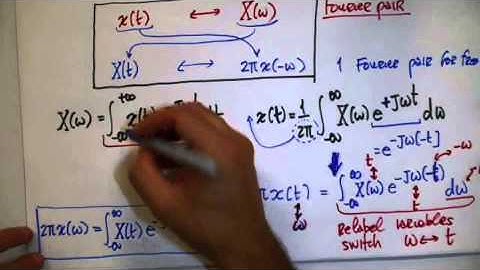 x(t) ↔ X(ω) Fourier pair
X(t) ↔ 2πx(-ω)
1 Fourier pair for free
X(ω) = ∫_{-∞}^{+∞} x(t) e^{-Jωt} dt x(t) = 1/2π ∫_{-∞}^{∞} X(ω) e^{+Jωt} dω
= e^{-Jω(-t)}
t -ω
πx(t) = ∫_{-∞}^{∞} X(ω) e^{-Jω(-t)} dω
ω
Relabel variables
switch ω ↔ t
2πx(ω) = ∫_{-∞}^{∞} X(t) e